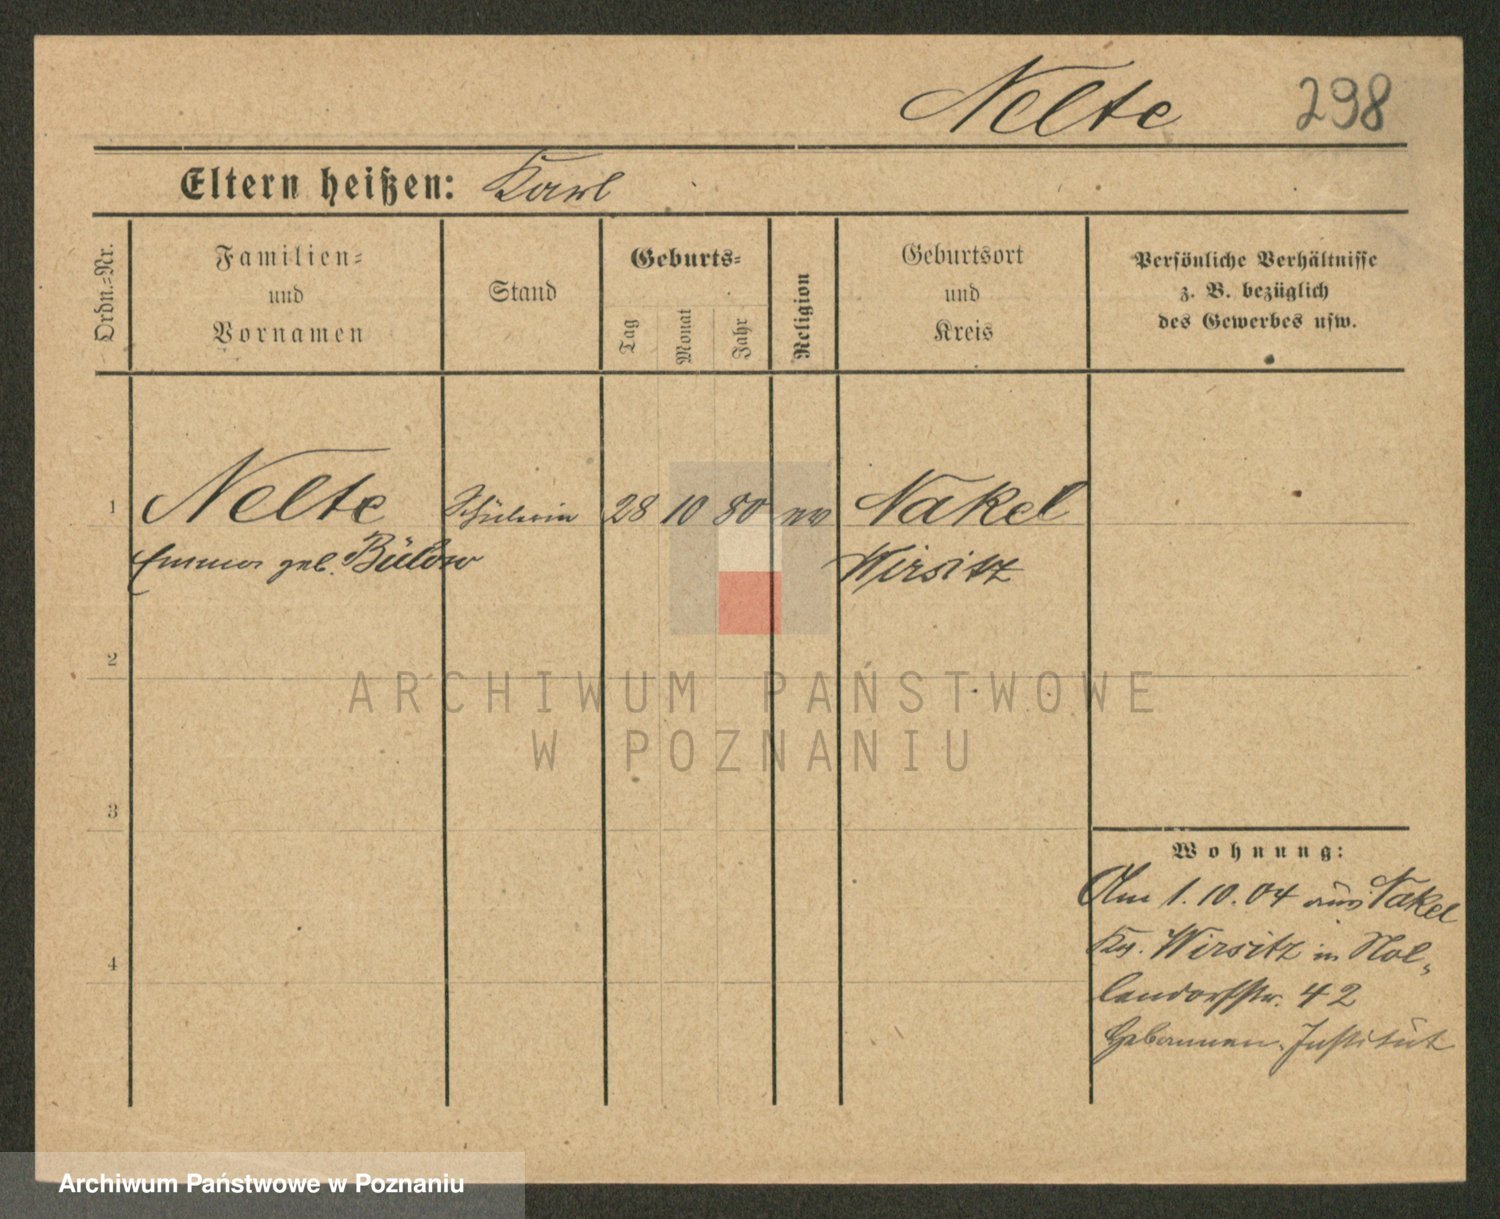 Nelte 298
Eltern heißen: Karl
Ordn.-Nr.
Familien-
und
Vornamen
Stand
Geburts-
Tag
Monat
Jahr
Religion
Geburtsort
und
Kreis
Persönliche Verhältnisse
z. B. bezüglich
des Gewerbes usw.
1 Nelte Schülerin 28 10 80 ev Nakel
Emma geb. Bülow Wirsitz
2
3
4
Wohnung:
Am 1. 10. 04 aus Nakel
Krs. Wirsitz in Nol-
lendorfstr. 42
Hebammen-Institut
ARCHIWUM PAŃSTWOWE
W POZNANIU
Archiwum Państwowe w Poznaniu